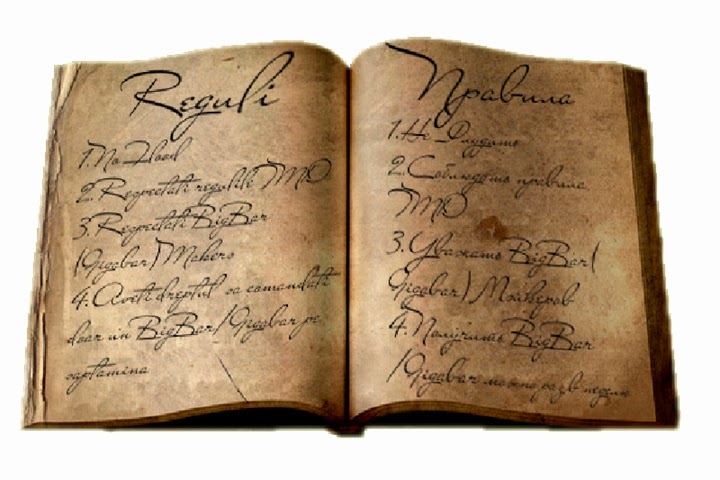 Reguli
1.No Flood
2.Respectati regulile TMD
3.Respectati BigBar
/Gigabar/Makers
4.Aveti dreptul sa comandati
doar un BigBar/Gigabar pe
saptamina
Правила
1.Не Флудить
2.Соблюдать правила
TMD
3.Уважать BigBar/
Gigabar/Мэйкеров
4.Получить BigBar
/Gigabar можно раз в неделю